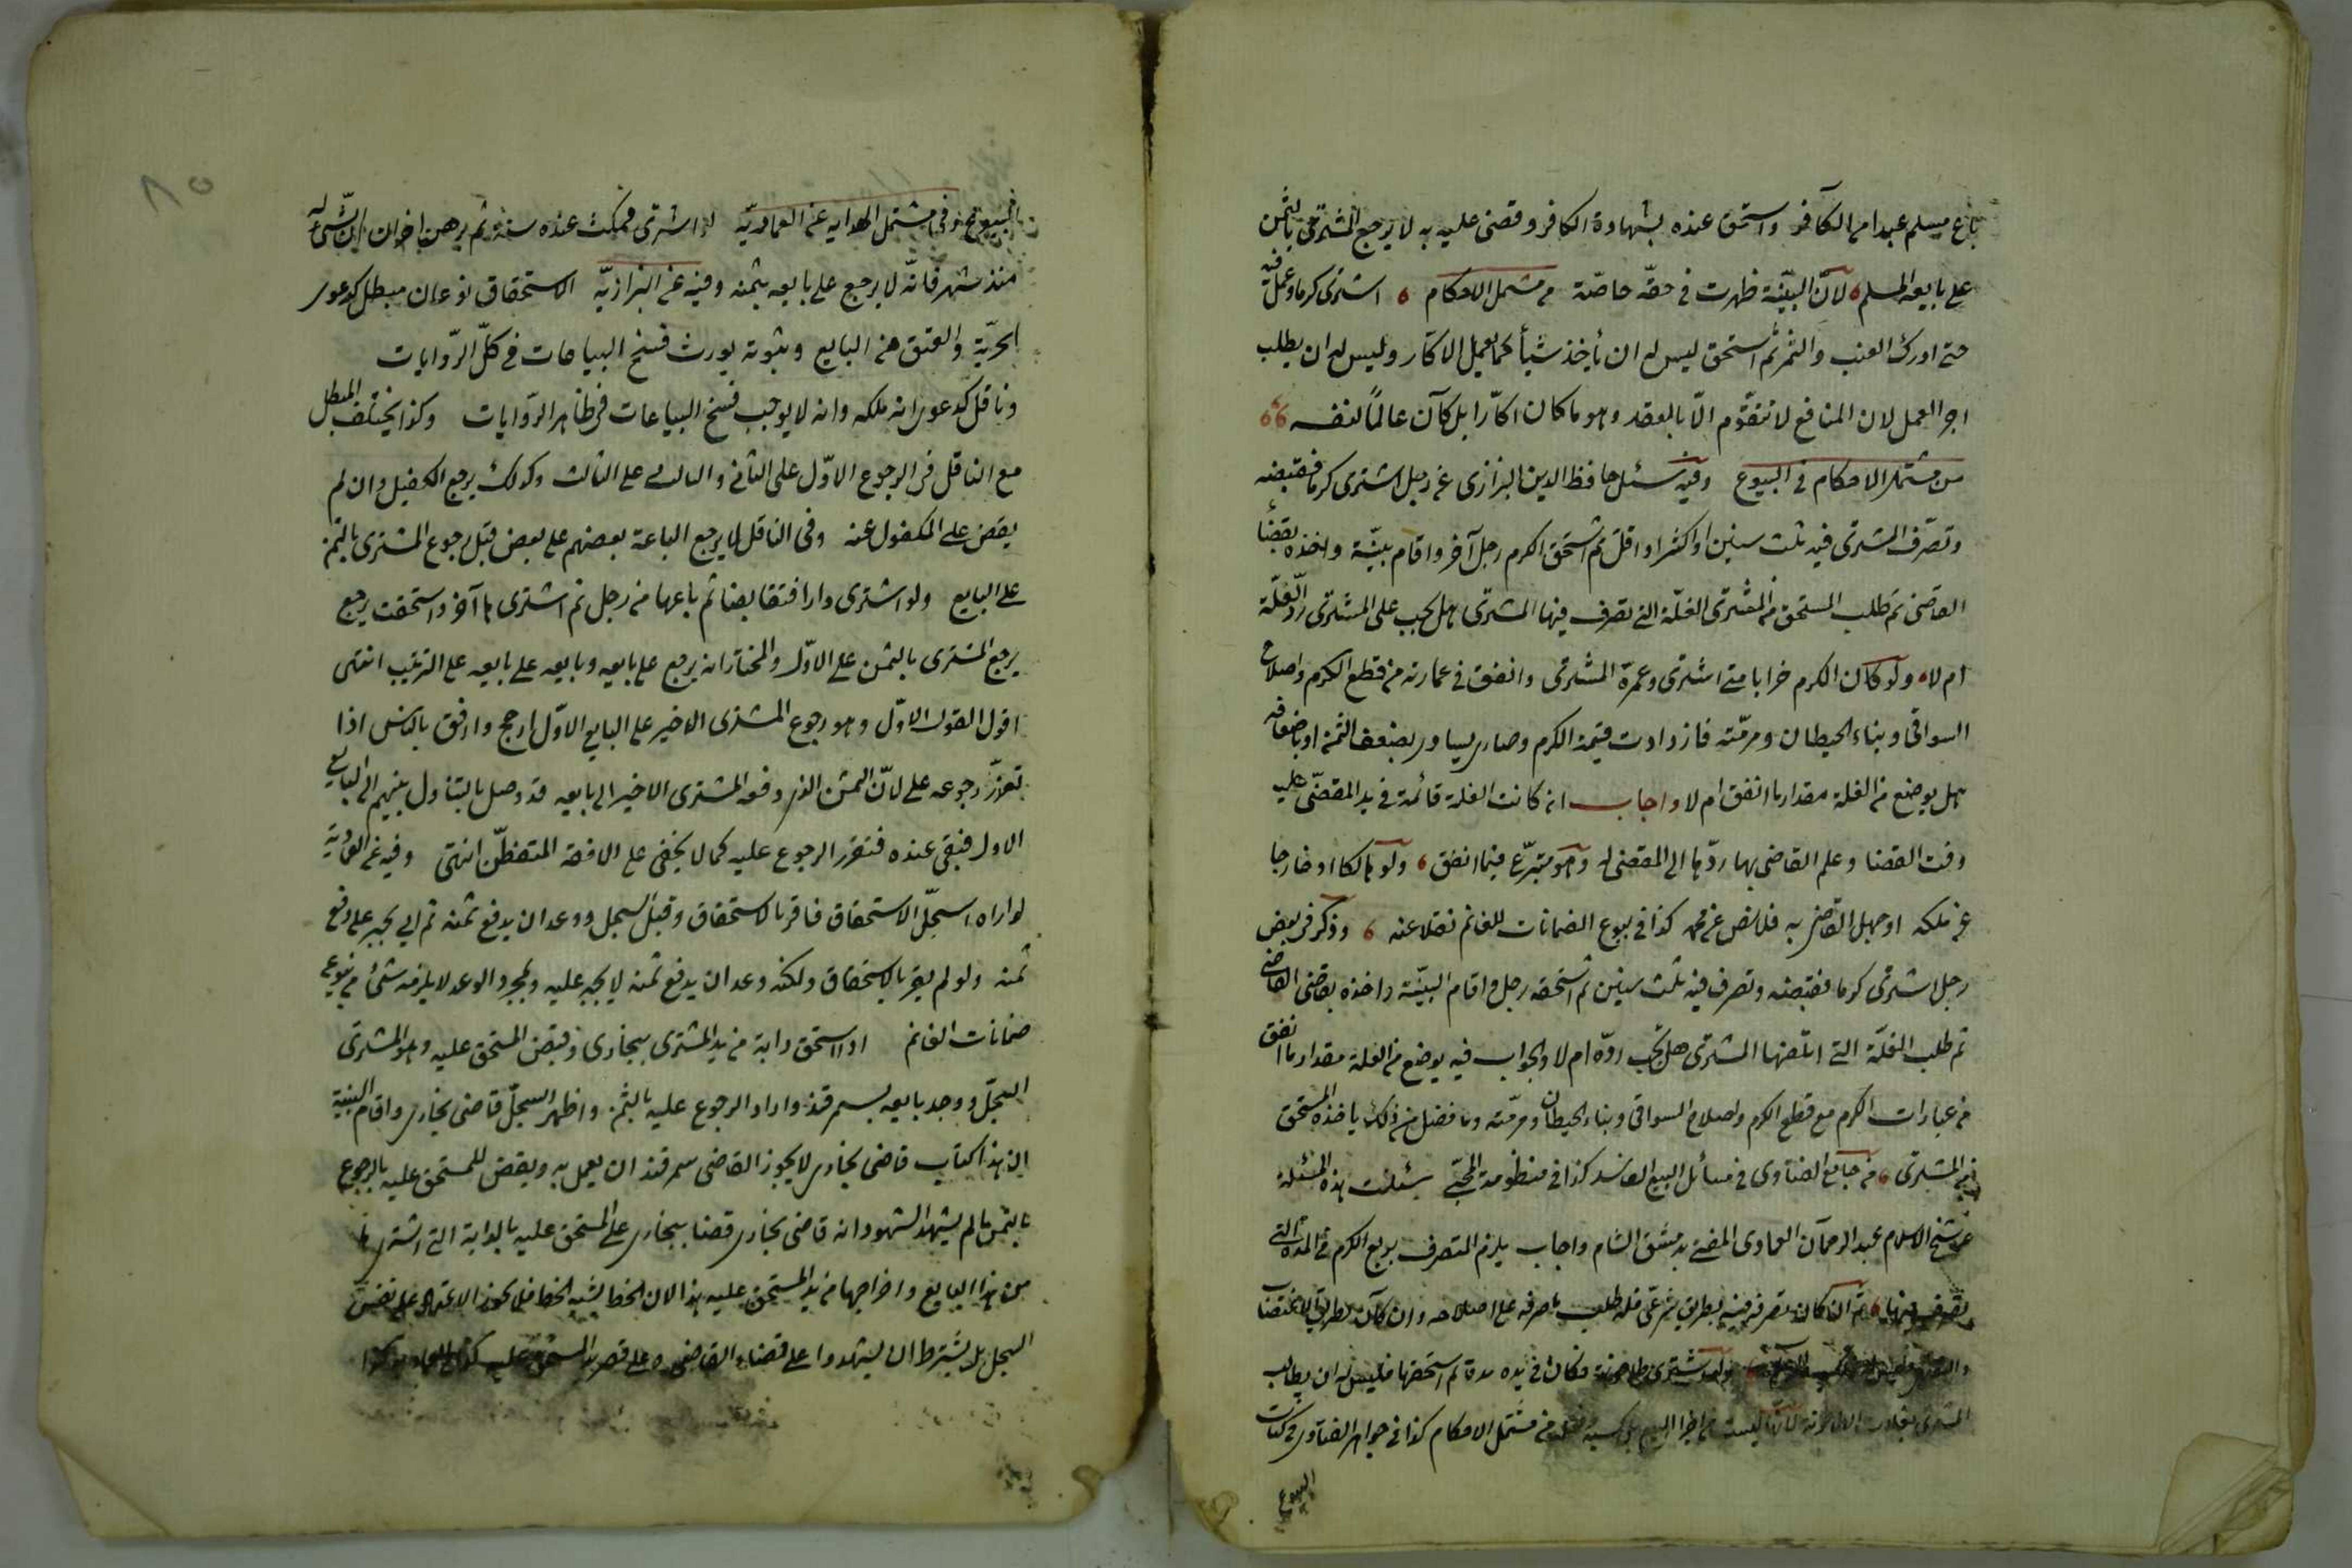 باع مسلم عبدا من الكافر واستحق عنده بشهادة الكافر وقضى عليه به لا يرجع المشترى بالثمن
على بايعه المسلم لانّ البيّنة ظهرت فى حقّه خاصّة من مشتمل الاحكام اشترى كرما وعمل فيه
حتى ادرك العنب والثمر ثم استحق ليس له ان يأخذ شيأ كما يعمل الاكار وليس له ان يطلب
اجر العمل لان المنافع لا تتقوّم الّا بالعقد وهو ما كان اكّارا بل كان عاملًا لنفسه
من مشتمل الاحكام فى البيوع وفيه سئل حافظ الدين البزازى عن رجل اشترى كرما فقبضه
وتصرّف المشترى فيه ثلث سنين او اكثر او اقل ثم استحق الكرم رجل آخر واقام بيّنة واخذه بقضاء
القاضى ثم طلب المستحق من المشترى الغلّة التى تصرف فيها المشترى هل يجب على المشترى ردّ الغلّة
ام لا ولو كان الكرم خرابا متى اشترى وعمرّه المشترى وانفق فى عمارته من قطع الكرم واصلاح
السواقى وبناء الحيطان ومرمّته فازدادت قيمة الكرم وصار يساوى بضعف الثمن او باضعافه
هل يوضع من الغلة مقدار ما انفق ام لا واجاب ان كانت الغلة قائمة فى يد المقضّى عليه
وقت القضا وعلم القاضى بها ردّها الى المقضى له وهو متبرّع فيما انفق ولو هالكا او خارجا
عن ملكه او جهل القاضى به فلا نص عن محمد كذا فى بيوع الضمانات للغانم نقلا عنه وذكر فى بعض
رجل اشترى كرما فقبضه وتصرف فيه ثلث سنين ثم استحقه رجل واقام البيّنة واخذه بقضى القاضى
ثم طلب الغلّة التى اتلفها المشترى هل يجب ردّه ام لا والجواب فيه يوضع من الغلة مقدار ما انفق
من عبارات الكرم مع قطع الكرم واصلاح السواقى وبناء الحيطان ومرمّته وما فضل من ذلك ياخذه المستحق
من المشترى من جامع الفتاوى فى مسائل البيع الفاسد كذا فى منظومة المحبّى سئلت هذه المسئلة
عن شيخ الاسلام عبد الرحمان العمادى المفتى بدمشق الشام واجاب يلزم المتصرف بريع الكرم فى المدة التى
تصرف فيها ثم ان كان تصرفه فيه بطريق شرعّى فله طلب ما صرفه على اصلاحه وان كان بطريق الاغتصاب
ولو اشترى طاحونة فكان فى يده مدة ثم استحقها فليس له ان يطالب
المشترى بغلات الطاحونة من مشتمل الاحكام كذا فى جواهر الفتاوى فى كتاب
البيوع
البيوع وفى مشتمل الهدايه عن العماديّه لو اشترى فمكث عنده سنة ثم برهن اخر ان الشئ له
منذ شهر فانّه لا يرجع على بايعه بثمنه وفيه عن البزازيّه الاستحقاق نوعان مبطل كدعوى
الحرّية والعتق من البايع وثبوته يورث فسخ البياعات فى كلّ الرّوايات
وناقل كدعوى انه ملكه وانه لا يوجب فسخ البياعات فى ظاهر الرّوايات وكذا يختلف المبطل
مع الناقل فى الرجوع الاوّل على الثانى والثانى على الثالث وكذلك يرجع الكفيل وان لم
يقض على المكفول عنه وفى الناقل لا يرجع الباعة بعضهم على بعض قبل رجوع المشترى بالثمن
على البايع ولو اشترى دارا فتقابضا ثم باعها من رجل ثم اشترى ها آخر واستحقت يرجع
يرجع المشترى بالثمن على الاوّل والمختار انه يرجع على بايعه وبايعه على بايعه على الترتيب انتهى
اقول القول الاوّل وهو رجوع المشترى الاخير على البايع الاوّل ارجح وارفق بالناس اذا
تعذّر رجوعه على لانّ الثمن الذى دفعه المشترى الاخير الى بايعه قد وصل بالتناول بينهم الى البايع
الاول فبقى عنده فتقرر الرجوع عليه كما لا يخفى على الافقه المتفطّن انتهى وفيه عن
لو اراه سجلّ الاستحقاق فاقر بالاستحقاق وقبل السجل ووعد ان يدفع ثمنه ثم ابى يجبر على دفع
ثمنه ولو لم يقر بالاستحقاق ولكنه وعد ان يدفع ثمنه لا يجبر عليه ولمجرد الوعد لا يلزمه شئ من بيوع
ضمانات الغانم اذا استحق دابة من يد المشترى ببخارى وقبض المستحق عليه وهو المشترى
السجلّ ووجد بايعه بسمرقند واراد الرجوع عليه بالثمن واظهر السجلّ قاضى بخارى واقام البينة
ان هذا كتاب قاضى بخارى لا يجوز القاضى سمرقند ان يعمل به ويقضى للمستحق عليه بالرجوع
بالثمن ما لم يشهد الشهود انه قاضى بخارى قضا ببخارى على المستحق عليه بالدابة التى اشترى ها
من هذا البايع واخراجها من يد المستحق عليه هذا لان الخط يشبه الخط فلا يجوز الاعتماد على نفس
السجل بل يشترط ان يشهدوا على قضاء القاضى وعلى قصر يد المستحق عليه